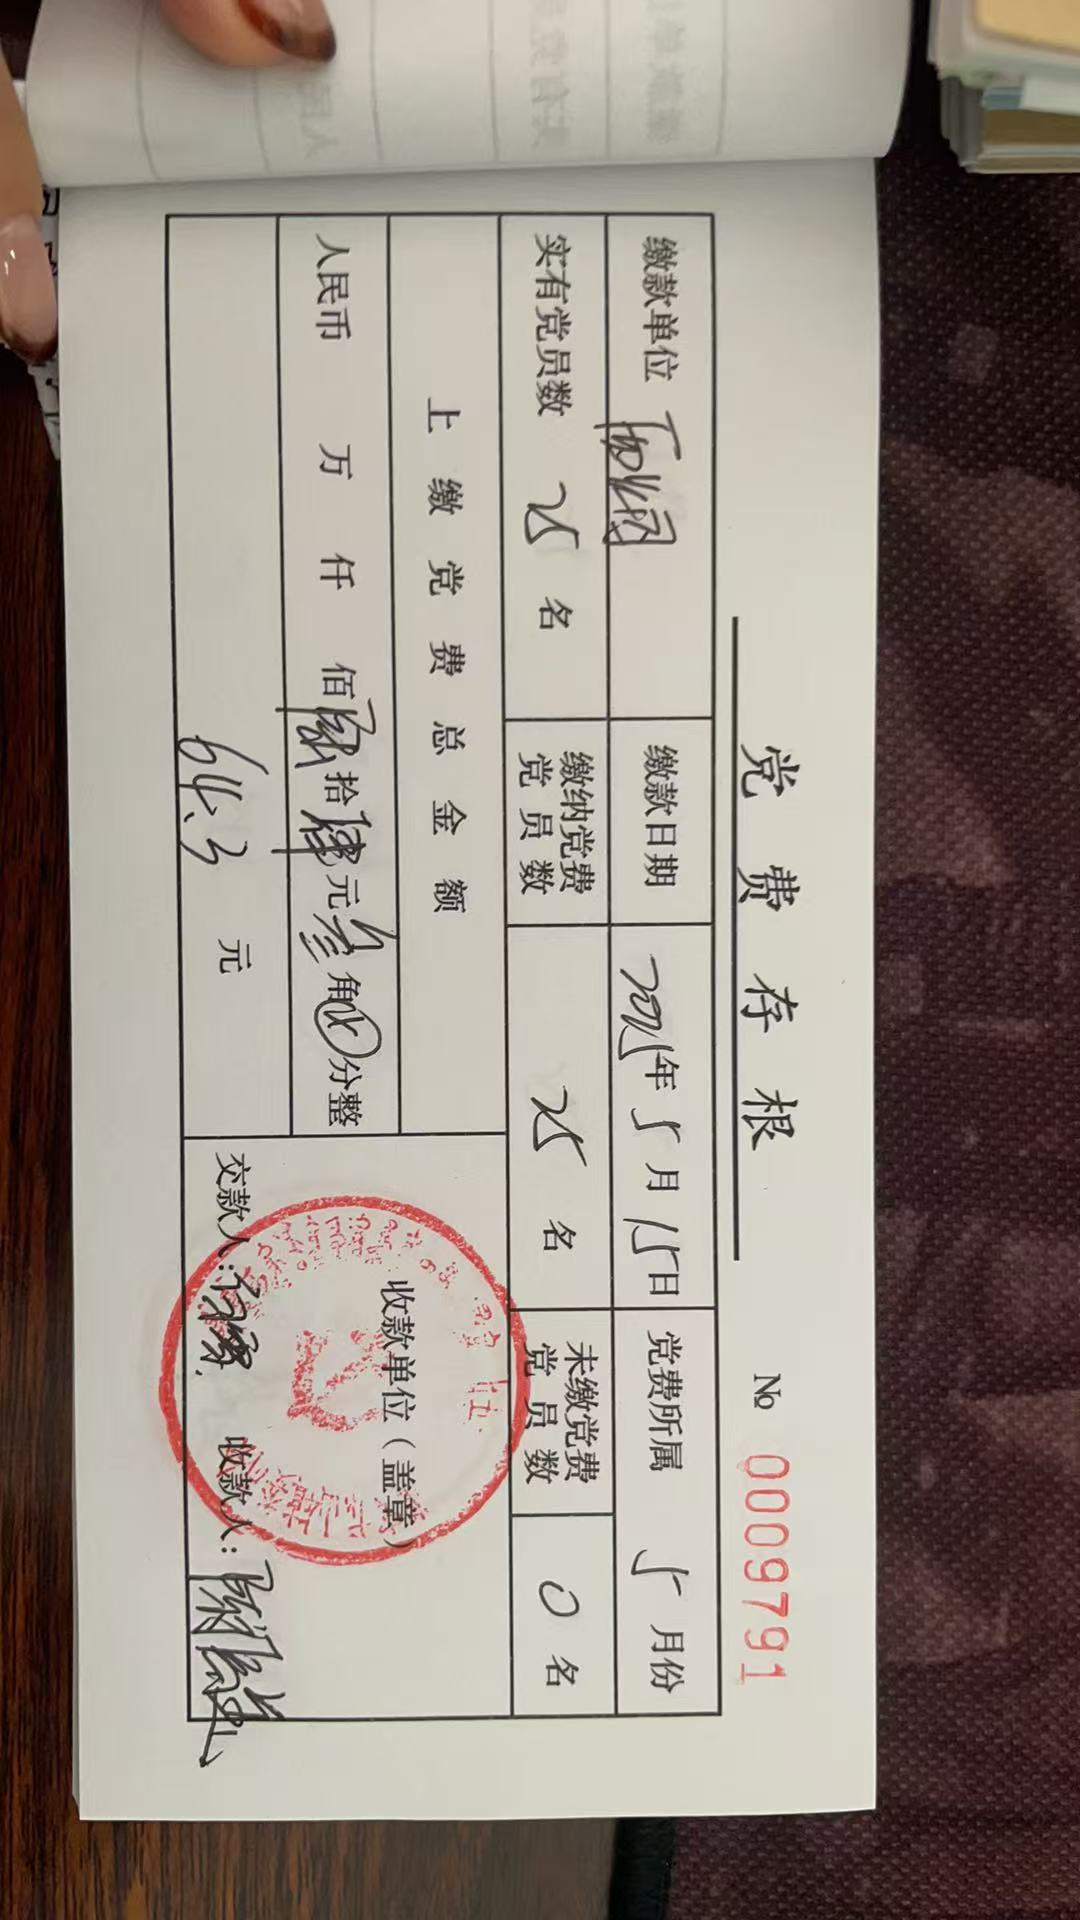 党费存根
№ 0009791
缴款单位 缴款日期 2025年5月15日 党费所属 5月份
实有党员数 25 名 缴纳党费党员数 25 名 未缴党费党员数 0 名
上缴党费总金额
人民币 万 仟 佰陆拾肆元叁角 分整
64.3 元
收款单位(盖章)
交款人: 收款人: